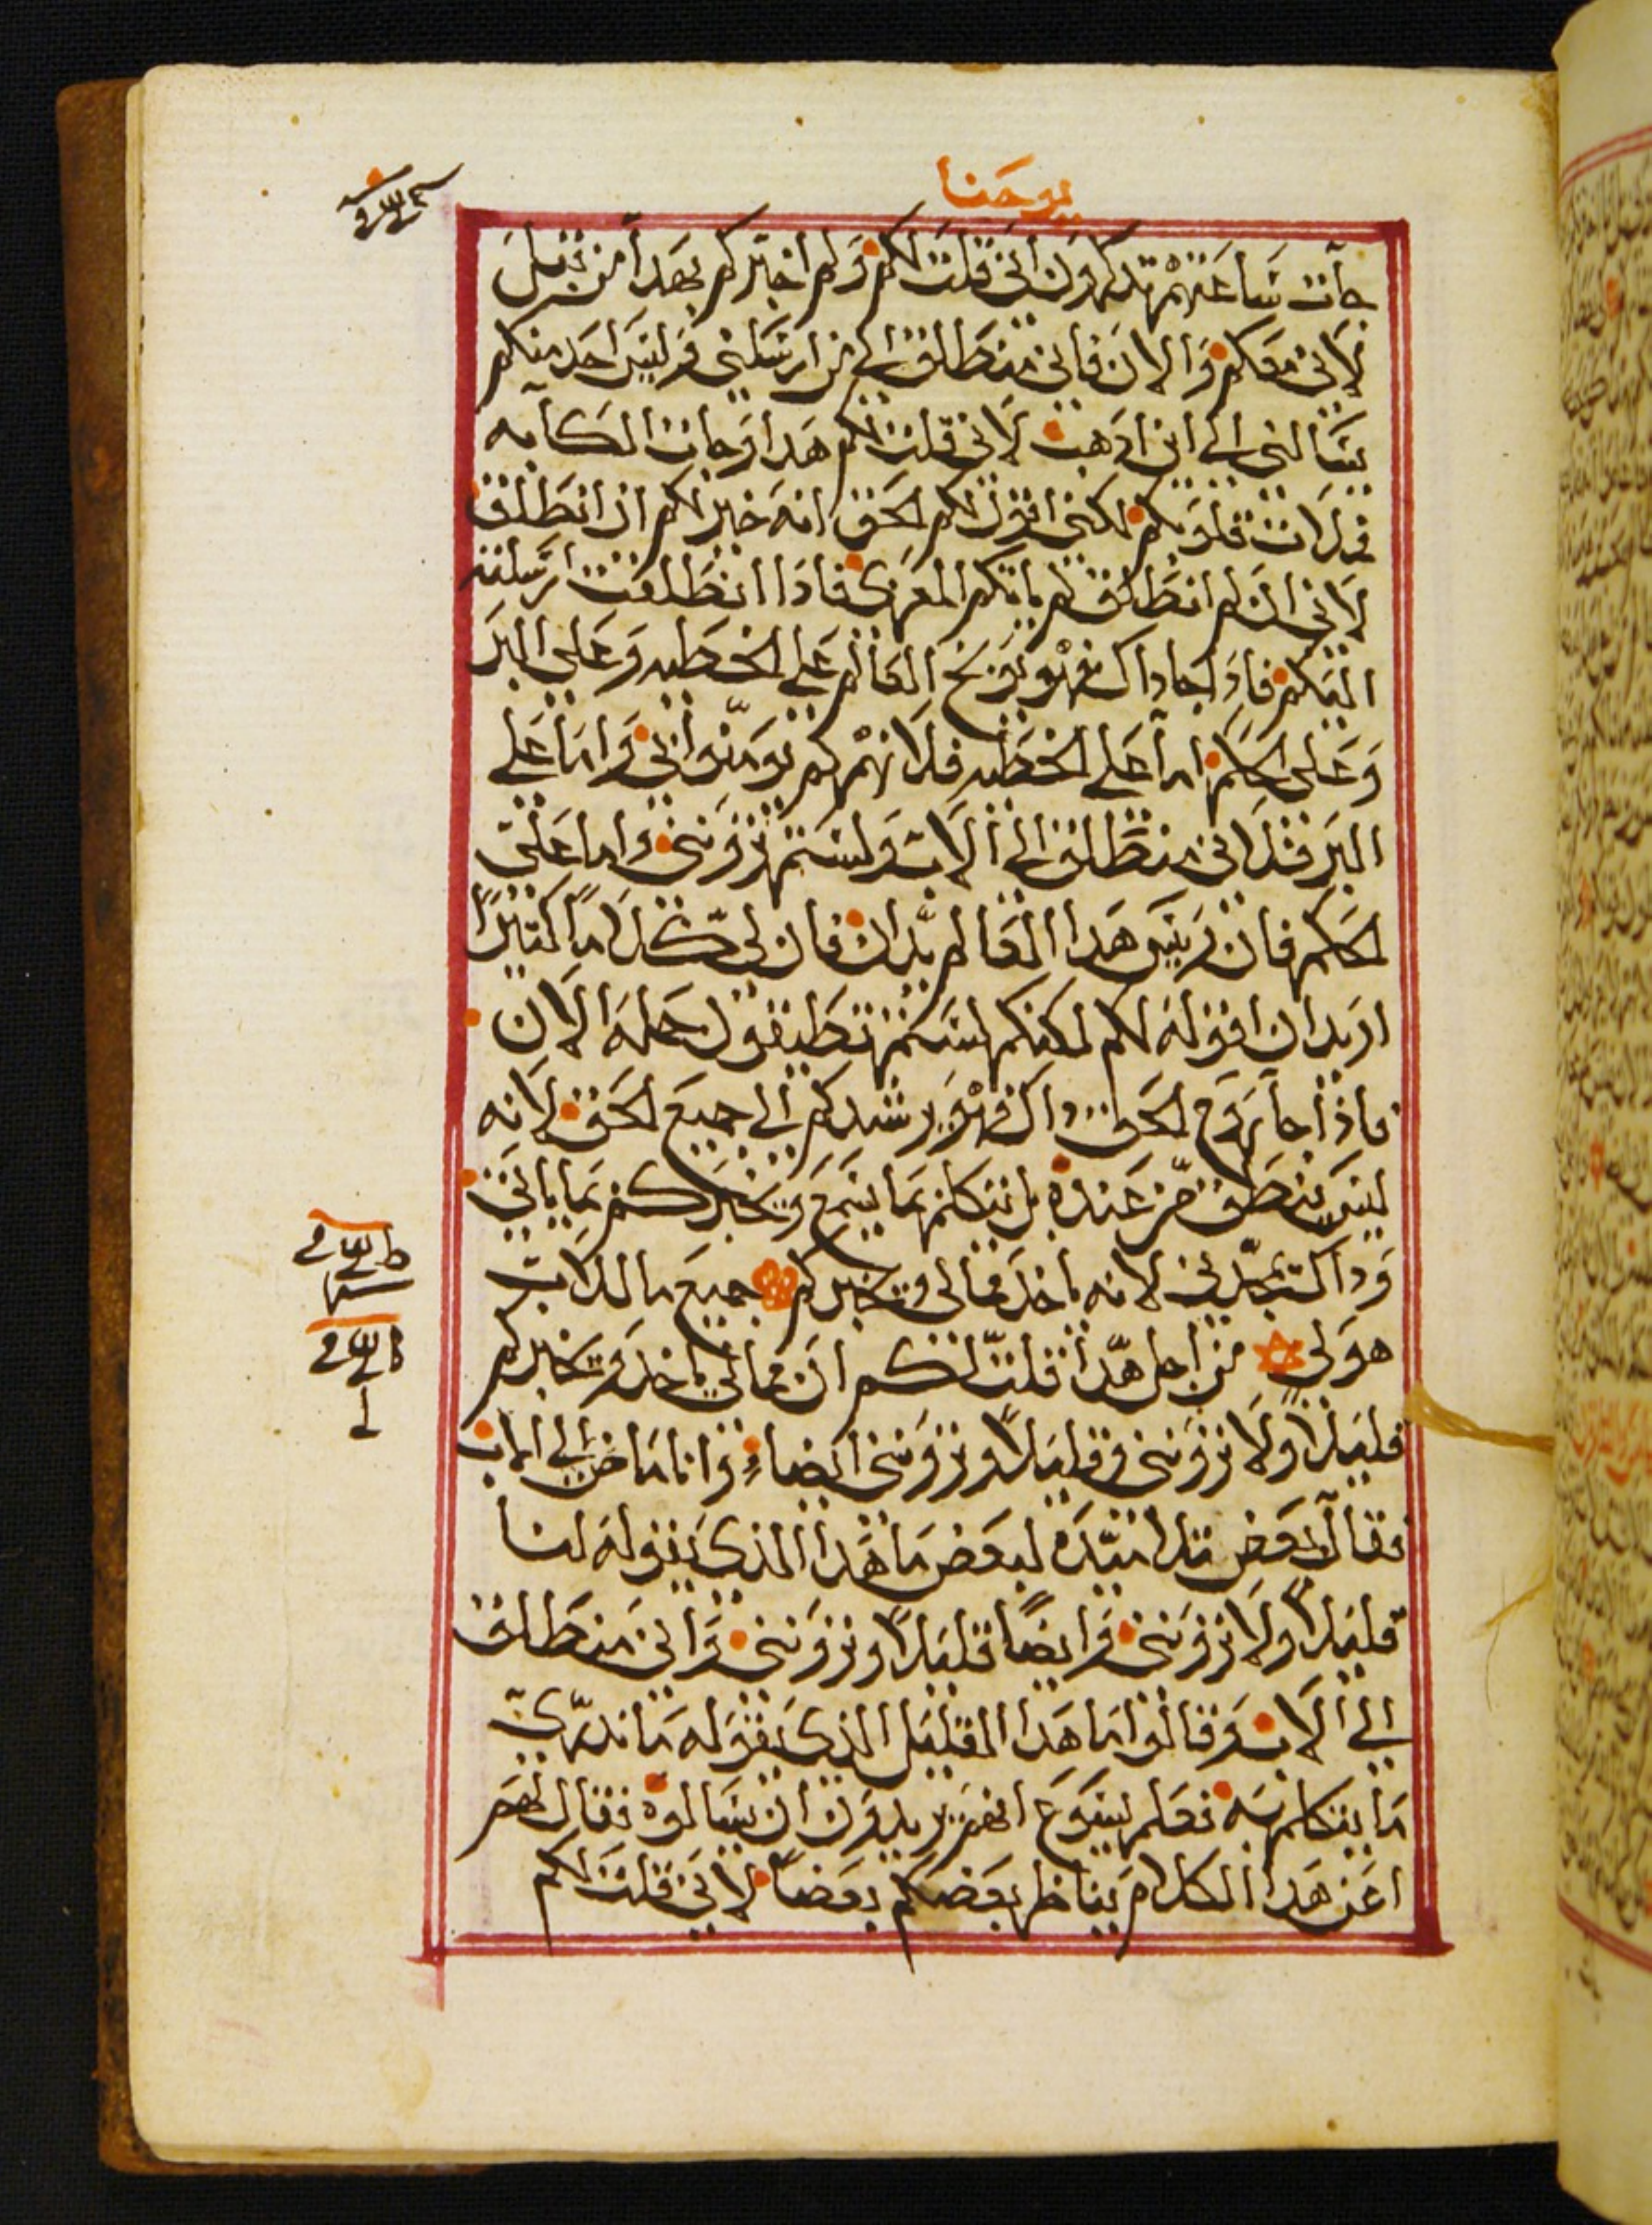 يوحنا
جآت سَاعَتهمْ تدكرون اني قلت لكم وَلم اخبركم بهَدا من قبلَ
لاني معَكم وَالانَ فاني منطَلق الي من ارسَلني وَليسَ احَد منكم
يسَالني الي اين ادهب لاني قلت لكم هَدا وَجات الكابه
فملات قلوبكم لكني اقول لكم الحَق انه خير لكم ان انطَلق
لاني ان لم انطلق لم ياتكم المعزي فادَا انطَلقت ارسَلته
اليكم فادا جا داك فهْو يوَبخ العَالم عَلي الخطَيه وَعَلي البرَ
وَعَلي الحكم امَا عَلي الخطَيه فلانهمْ لم يومَنوا بي وَامَا عَلي
البرَ فلاني منطَلق الي الاب وَلستم تروَنني وَاما عَلي
الحكم فان رييس هَدا العَالم يدان فان لي كلَاماً كتيرًا
اريد ان اقوله لكم لكنكم لستم تطَيقون حَمله الان
فاذا جآ روح الحَق داك فهْو يرشدكم الي جميعَ الحَق لانه
ليسَ ينطَق من عَنده بل يتكلم بمَا يسَمع وَيخبرَكم بمَا ياتي
وَداك يمجدني لانه ياخد ممَا لي وَيخبركم جميعَ ما للاب
هوَ لي من اجل هَدا قلت لكم ان ممَا لي ياخد وَيخبركم
قليلاً ولا تروَنني وَقليلاً وتروَنني ايضاً وَانا مَاض الي الاب
فقال بعَض تلاميَده لبعَض مَا هَدا الذي يقوله لنا
قليلاً ولا تروَنني وَايضًا قليلاً وتروَنني وَاني منطَلق
الي الاب وَقالوا مَا هَدا القليل الذي يقوَله مَا ندري
مَا يتكلم بَه فعَلم يسَوع انهمَ يريدوَن ان يسَالوه فقال لهمَ
اعَن هَدا الكلام يناظر بعَضكم بعَضاً لاني قلت لكم